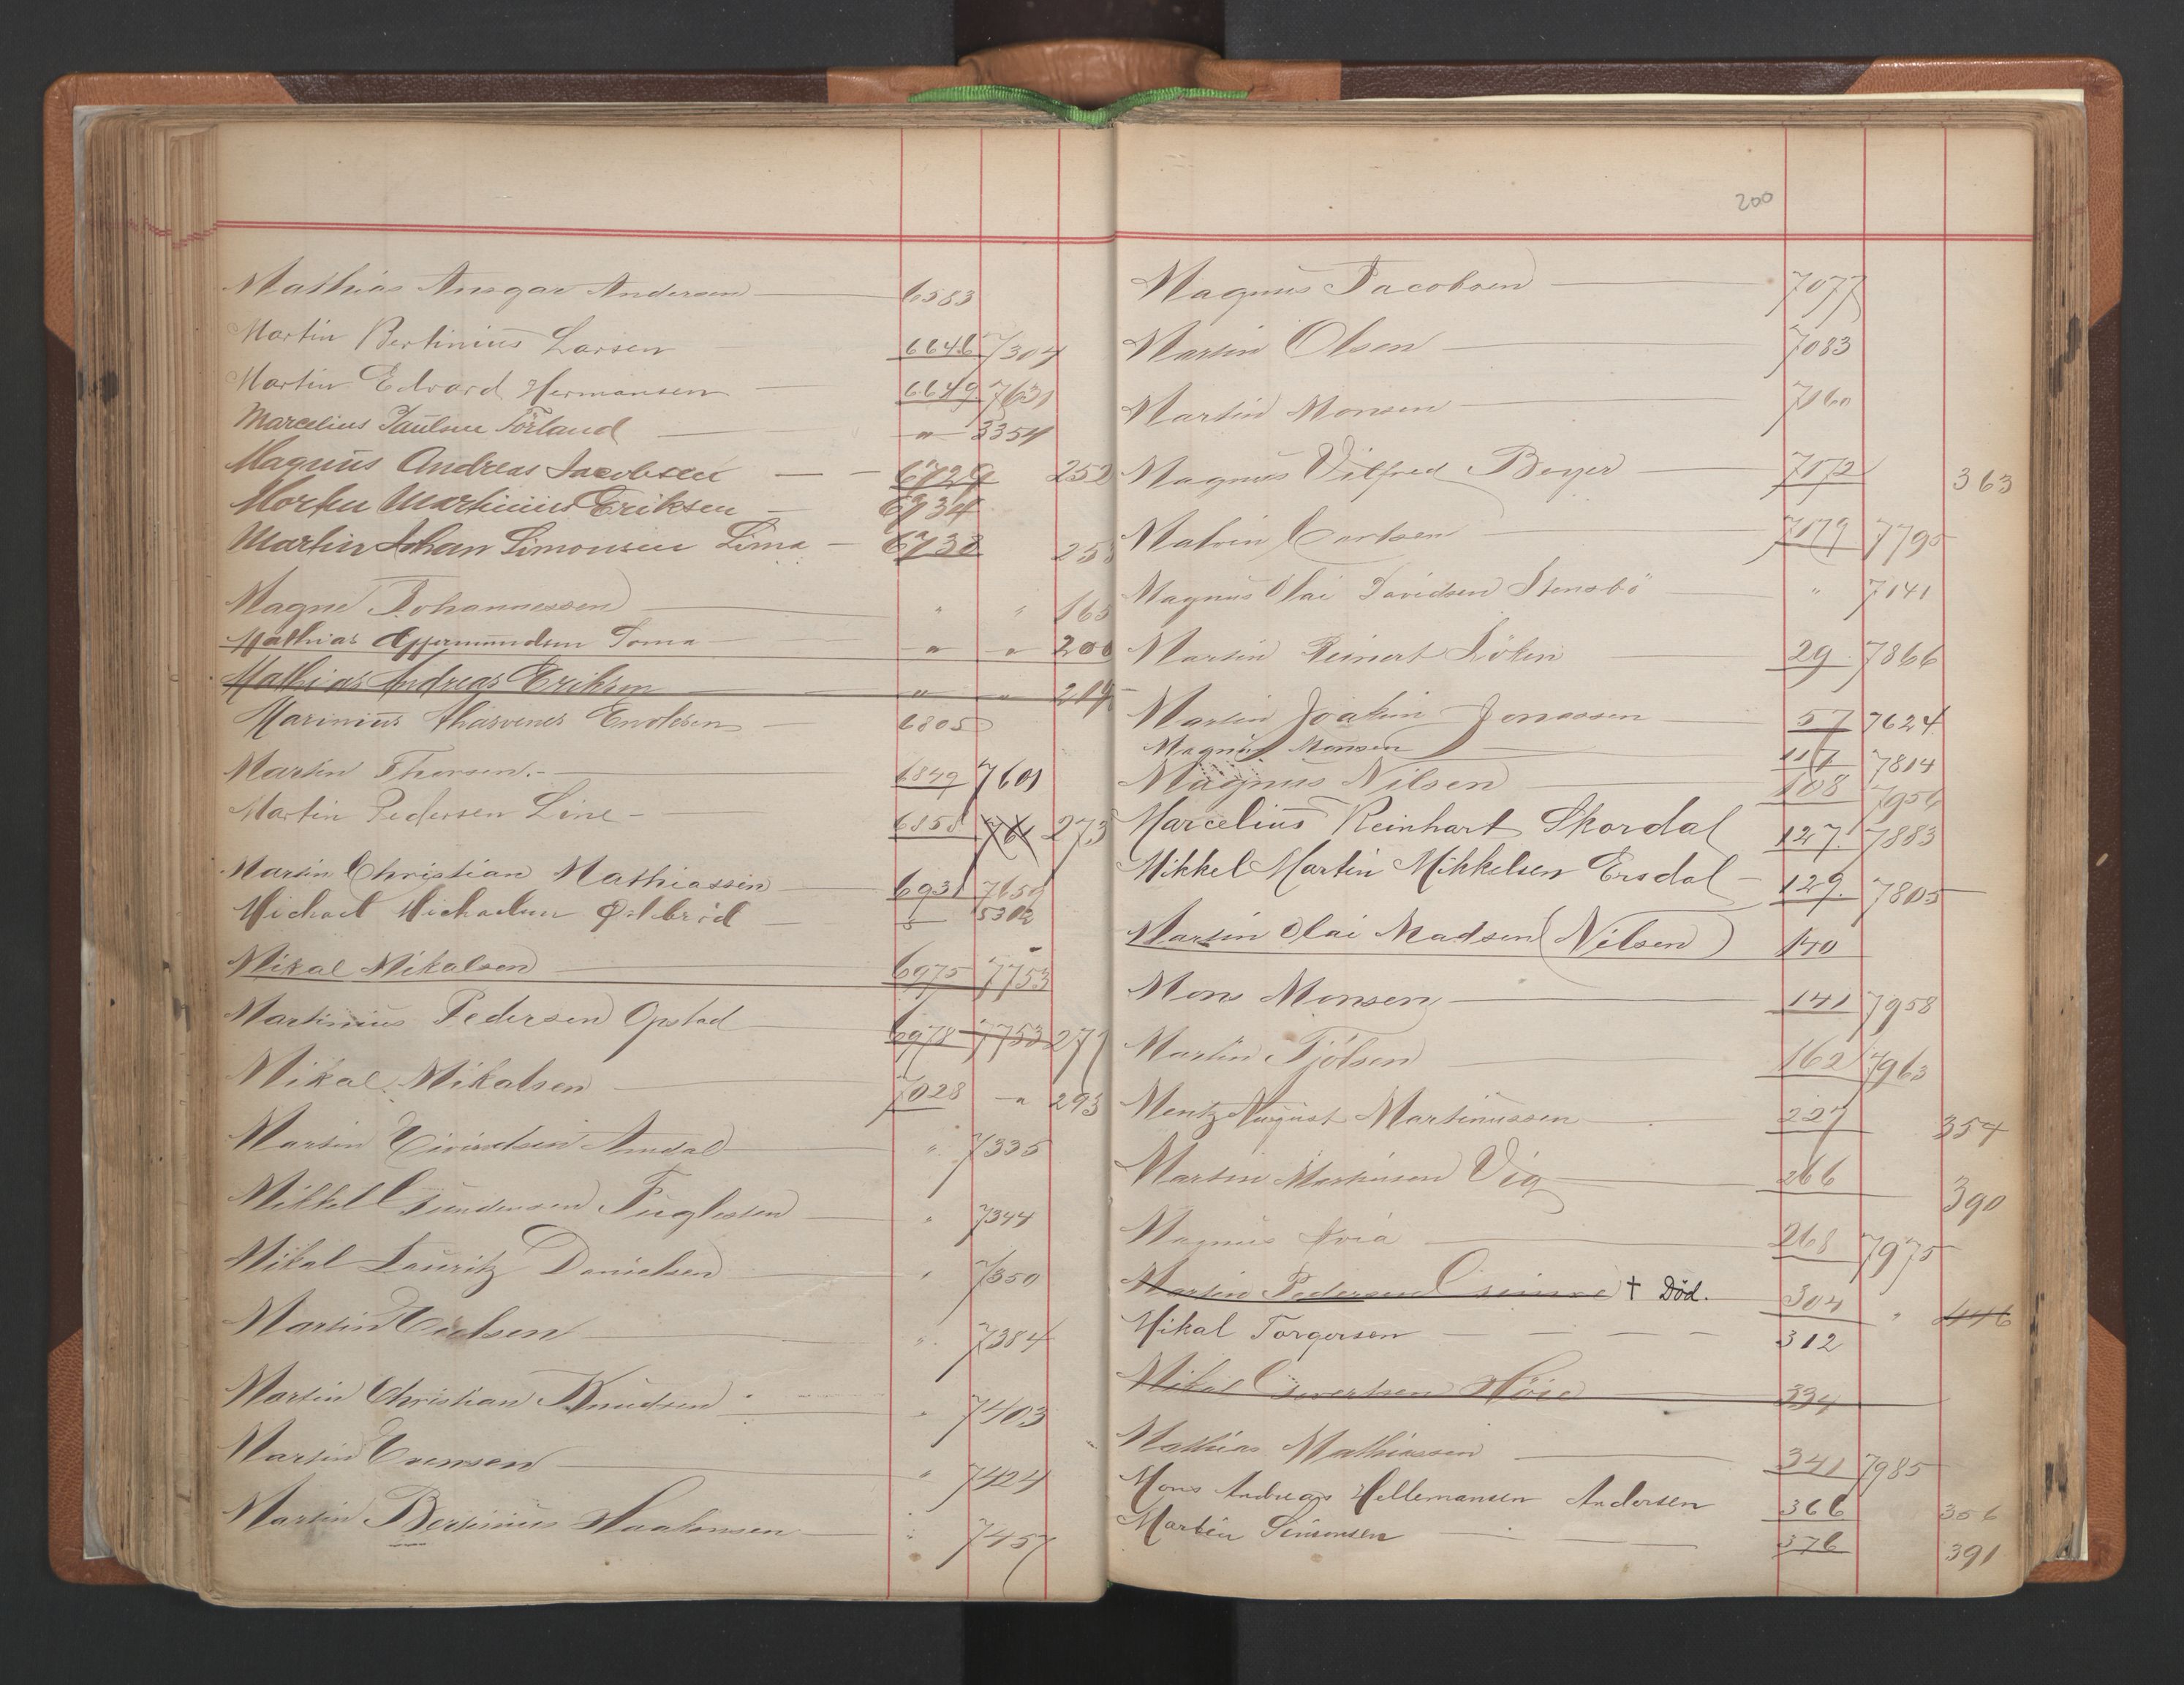 Mathias Ansgar Andersen 6583
Martin Bertinius Larsen 6646 7304
Martin Edvard Hermansen 6649 7631
Marcelius Paulsen Förland " 3354
Magnus Andreas Jacobsen 6729 252
Morten Martinius Eriksen 6734
Martin Johan Simonsen Lima 6738 253
Magne Johannessen " " 165
Mathias Asgermundsen Toma " " 200
Mathias Andreas Eriksen " " 219
Marinius Endresen 6805
Martin Thorsen 6849 7601
Martin Pedersen Line 6858 761 273
Martin Christian Mathiassen 6931 7659
Michael Michaelsen 5302
Mikal Mikalsen 6975 7753
Martinius Pedersen Opstad 6978 7753 277
Mikal Mikalsen 7028 " 293
Martin Eivindsen Amdal " 7335
Mikkel Gundersen Fuglesten " 7344
Mikal Lauritz Danielsen " 7350
Martin " 7384
Martin Christian Knudsen " 7403
Martin Evensen " 7424
Martin Bertinius Haakonsen " 7457
200
Magnus Jacobsen 7077
Martin Olsen 7083
Martin Monsen 7160
Magnus Vilfred Beyer 7172 363
Malvin Carlsen 7179 7795
Magnus Olai Davidsen Stensbö " 7141
Martin Reinert Löken 29 7866
Martin Joakim Jonassen 57 7624
Magnus Monsen 117 7814
Magnus Nilsen 108 7956
Marcelius Reinhart Skordal 127 7883
Mikkel Martin Mikkelsen Ersdal 129 7805
Martin Olai Madsen (Nilsen) 140
Mons Monsen 141 7958
Martin Fjölsen 162 7963
Mentz August Martinussen 227 354
Martin Martinsen Vig 266 390
Magnus 268 7975
Martin Pedersen † Död. 304 " 446
Mikal Torgersen 312
Mikal Sivertsen Höie 334
Mathias Mathiassen 341 7985
Mons Andreas Hellemansen Andersen 366 356
Martin Simonsen 376 391